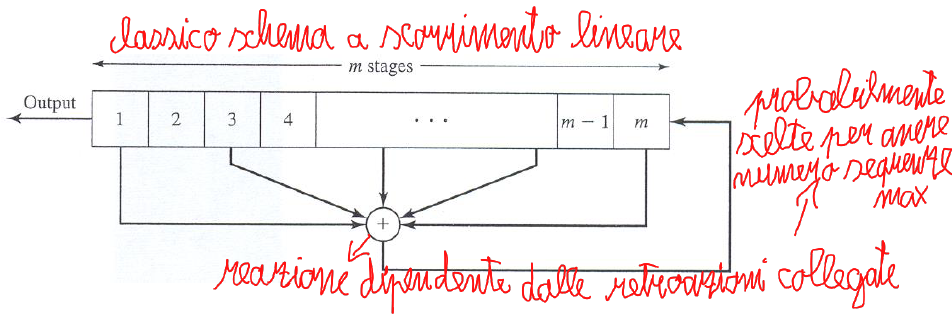 classico schema a scorrimento lineare
m stages
Output
1 2 3 4 · · · m − 1 m
probabilmente
scelte per avere
numero sequenze
max
+
reazione dipendente dalle retroazioni collegate